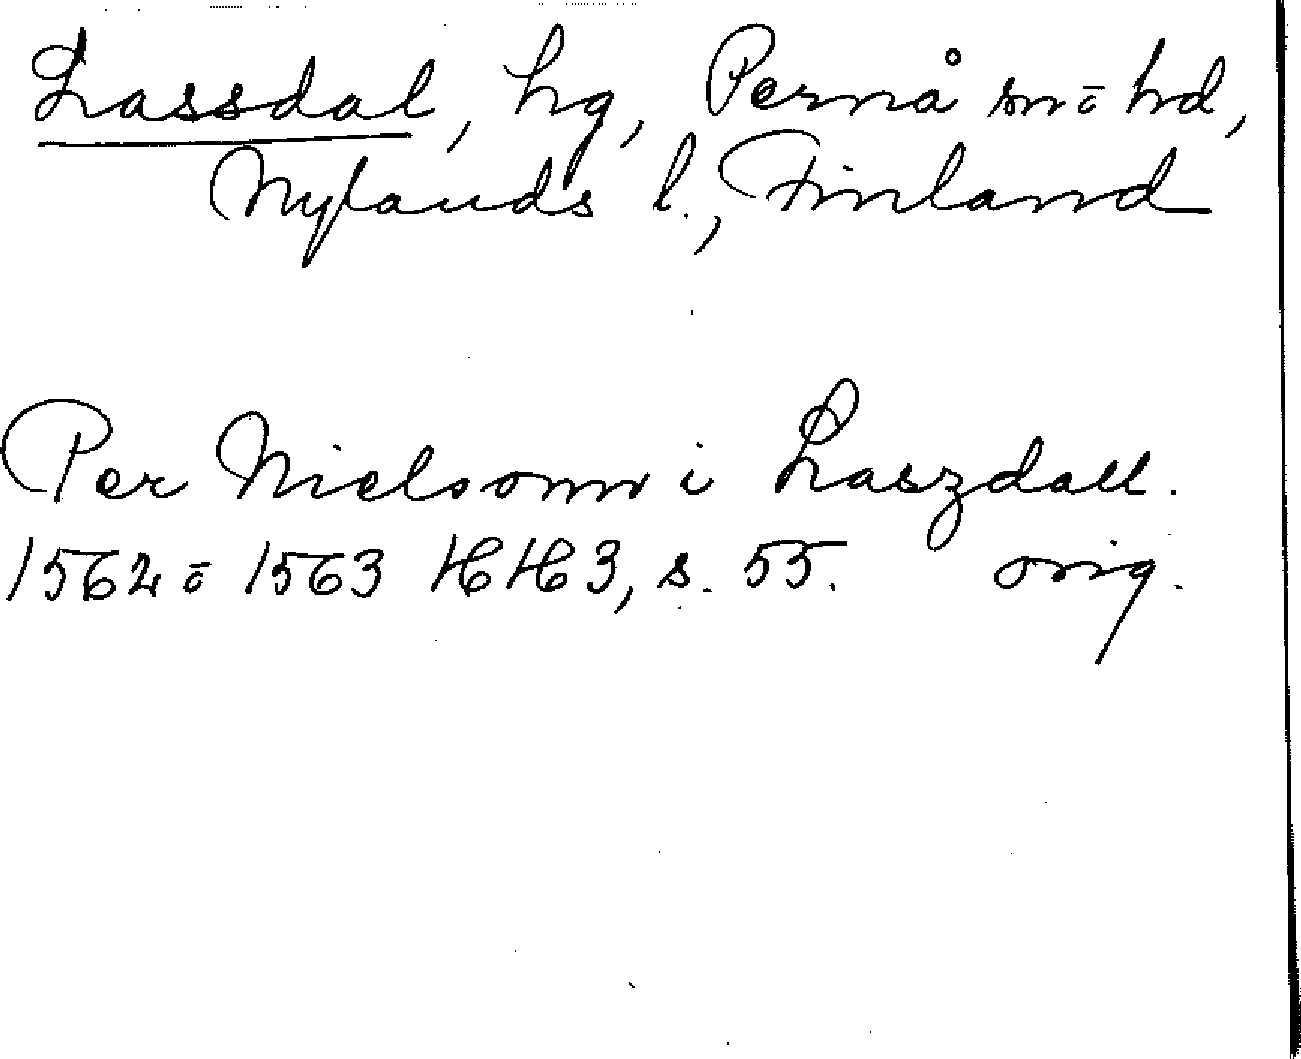 Lassdal, hg, Pernå sn ō hd,
Nylands l., Finland
Per Nielsonn i Laszdall.
1562 ō 1563 HH 3, s. 55. orig.